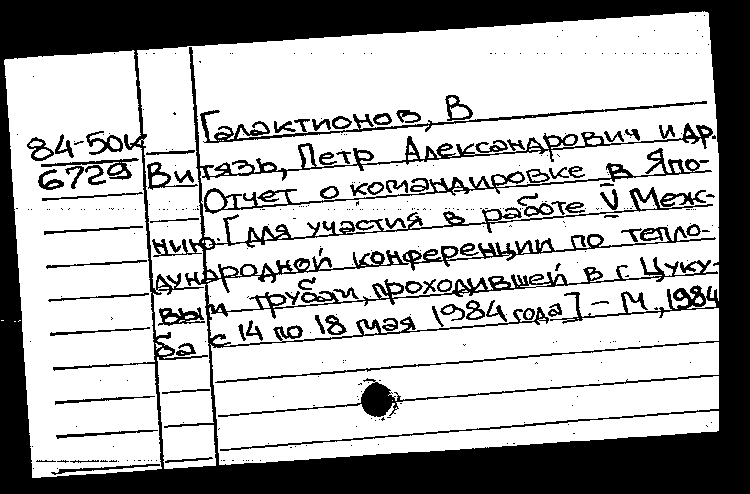 Галактионов, В
84-50к
6729
Витязь, Петр Александрович и др.
Отчет о командировке в Япо-
нию. [для участия в работе V Меж-
дународной конференции по тепло-
вым трубам, проходившей в г. Цуку-
ба с 14 по 18 мая 1984 года]. - М., 1984